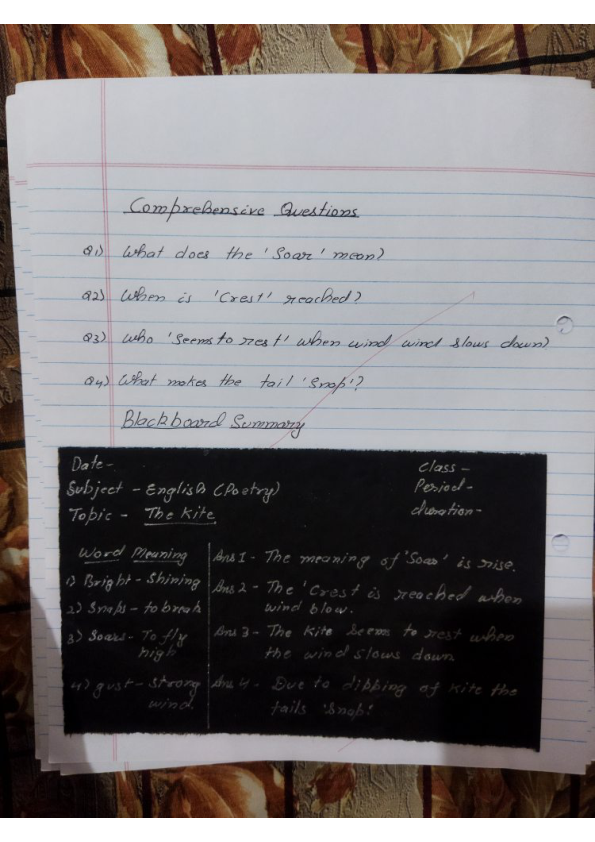 Comprehensive Questions
Q1) What does the 'Soar' mean?
Q2) When is 'Crest' reached?
Q3) Who 'Seems to rest' when wind wind slows down?
Q4) What makes the tail 'Snap'?
Blackboard Summary
Date -
Class -
Subject - English (Poetry)
Period -
Topic - The Kite
duration -
Word Meaning
1) Bright - Shining
2) Snaps - to break
3) Soars - To fly
high
4) gust - Strong
wind.
Ans 1 - The meaning of 'Soar' is rise.
Ans 2 - The 'Crest is reached when
wind blow.
Ans 3 - The Kite Seem to rest when
the wind slows down
Ans 4 - Due to dipping of Kite the
tails 'Snap'